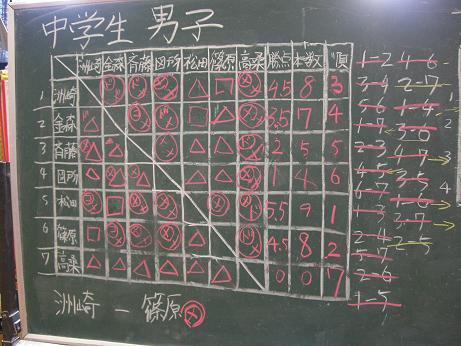 中学生 男子
洲崎 金森 斉藤 図所 松田 篠原 高桑 勝点 本数 順
1 洲崎 4.5 8 3
2 金森 3.5 7 4
3 斉藤 2 5 5
4 図所 1 4 6
5 松田 5.5 9 1
6 篠原 4.5 8 2
7 高桑 0 0 7
洲崎 － 篠原
1-2 4-6
3-4 2-7
5-6 1-4
1-7 3-6
2-3 4-7
4-5 3-5
6-7 1-6
1-3 3-7
2-4 2-5
5-7
2-6
1-5